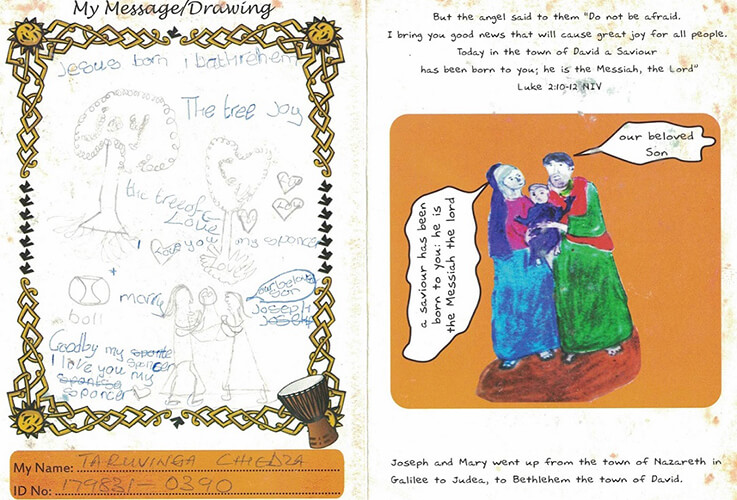 My Message/Drawing
Jesus born I bathrehem
The tree joy
Love
the tree of
Love
I Love you my soporcer
Love
+
marry
ball
our beloved
Son
Joseph
Joseph
Goodby my sponte
sporcer
I love you my
spontso
soporcer
My Name: TARUVINGA CHIEDZA
ID No: 179831-0390
But the angel said to them "Do not be afraid.
I bring you good news that will cause great joy for all people.
Today in the town of David a Saviour
has been born to you; he is the Messiah, the Lord"
Luke 2:10-12 NIV
our beloved
Son
a saviour has been
born to you: he is
the Messiah the lord
Joseph and Mary went up from the town of Nazareth in
Galilee to Judea, to Bethlehem the town of David.